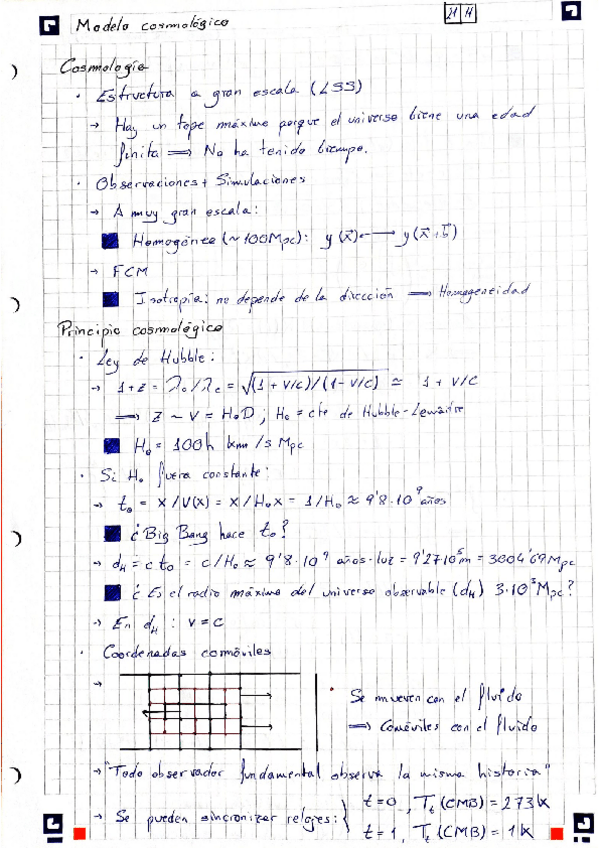 Modelo cosmológico
21 H
Cosmología
· Estructura a gran escala (LSS)
→ Hay un tope máximo porque el universo tiene una edad
finita ⟹ No ha tenido tiempo.
· Observaciones + Simulaciones
→ A muy gran escala:
Homogéneo (~100Mpc): y(x⃗) ⟷ y(x⃗+b⃗)
→ FCM
Isotropía: no depende de la dirección ⟹ Homogeneidad
Principio cosmológico
· Ley de Hubble:
→ 1+z = λo/λe = √(1+v/c)/(1-v/c) ≃ 1+v/c
⟹ z ~ v = HoD; Ho = cte de Hubble-Lemaitre
Ho = 100h km/s Mpc
· Si Ho fuera constante:
→ to = x/v(x) = x/Hox = 1/Ho ≈ 9'8·10⁹ años
¿Big Bang hace to?
→ dH = c to = c/Ho ≈ 9'8·10⁹ años-luz = 9'27·10⁵m = 3004'69Mpc
¿Es el radio máximo del universo observable (dH) 3·10³Mpc?
→ En dH : v=c
· Coordenadas comóviles
→
· Se mueven con el fluido
⟹ Comóviles con el fluido
→ "Todo observador fundamental observa la misma historia"
→ Se pueden sincronizar relojes: { t=0, Tt(CMB) = 273K
t=1, Tt(CMB) = 1K